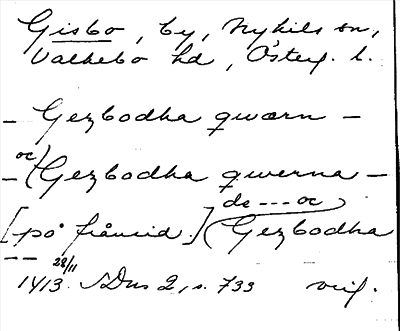 Gisbo, by, Nykils sn,
Valkebo hd, Österg. l.
– Gezbodha qwærn –
oc
– (Gezbodha qwerna –
de --- oc
[på frånsid.] (Gezbodha
-- 28/11
1413. SDns 2, s. 733 orig.